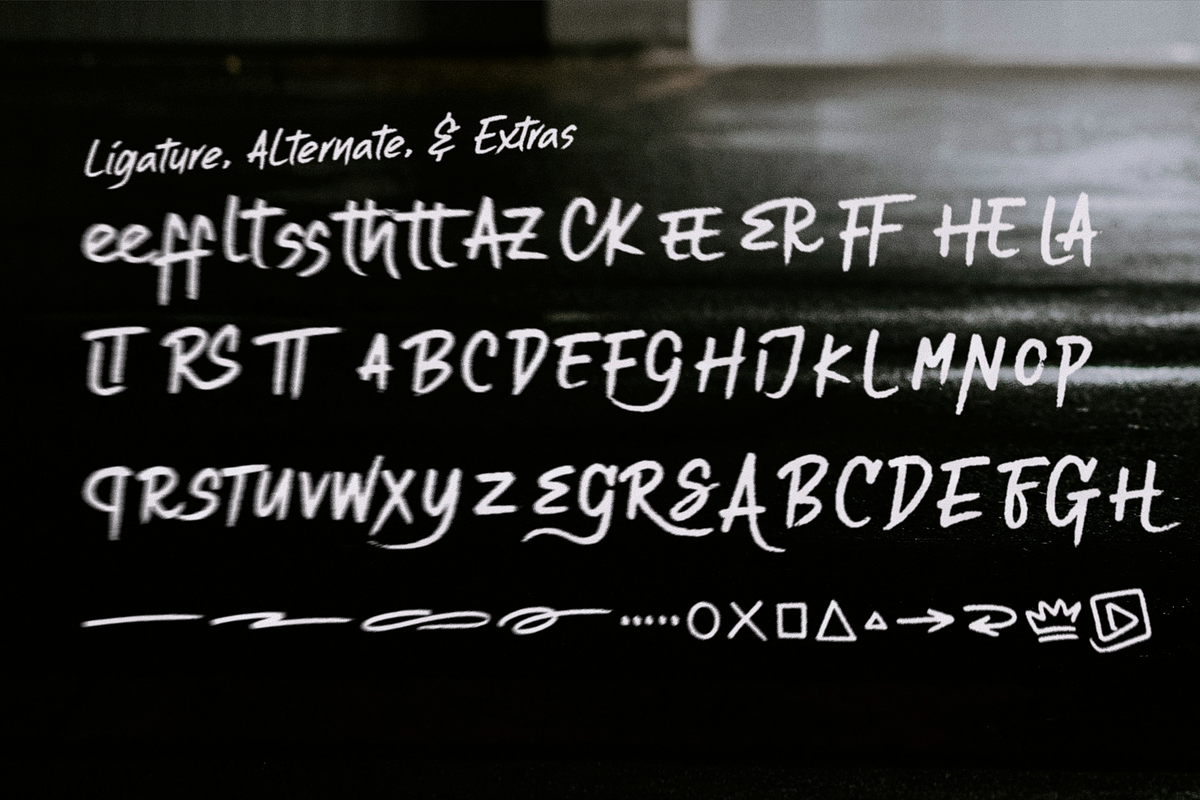 Ligature, Alternate, & Extras
ee ff lt ss th tt AZ CK EE ER FF HE LA
LT RS TT A B C D E F G H I J K L M N O P
Q R S T U V W X Y Z E G R S A B C D E F G H